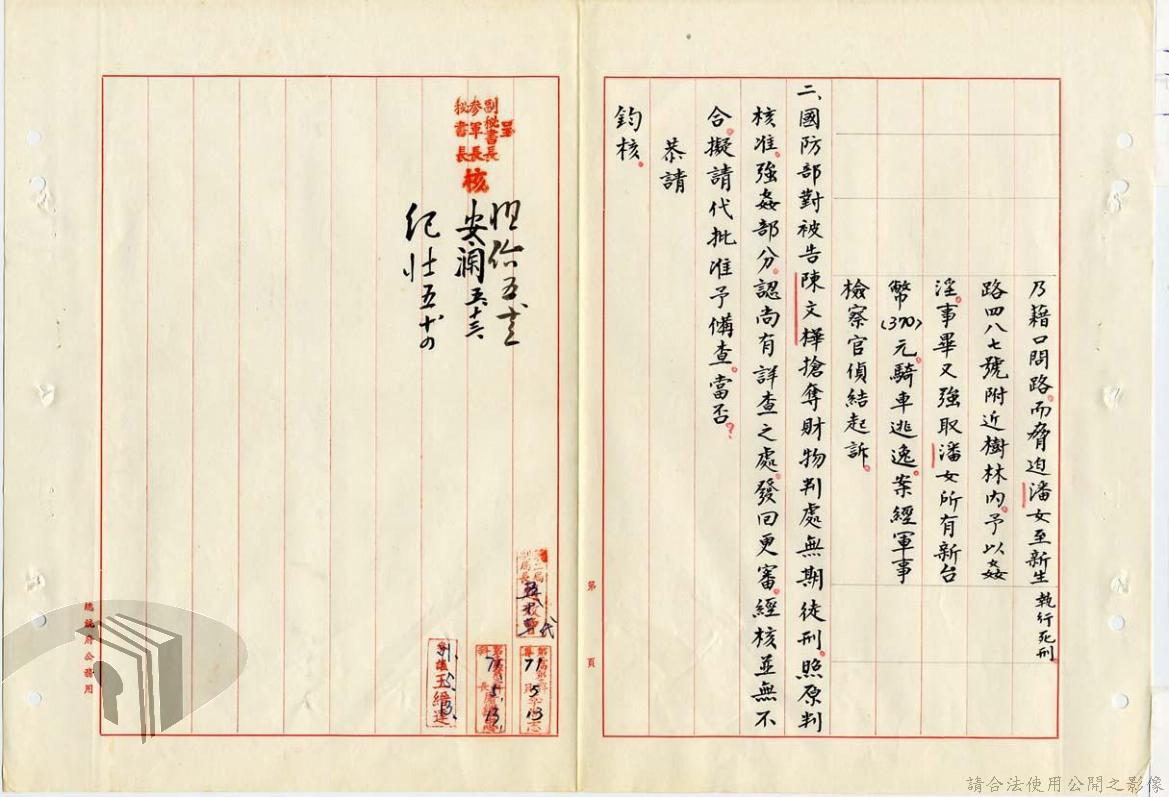 乃藉口問路。而脅迫潘女至新生
路四八七號附近樹林內。予以姦
淫。事畢又強取潘女所有新台
幣(370)元。騎車逃逸。案經軍事
檢察官偵結起訴。
執行死刑
二、國防部對被告陳文樺搶奪財物判處無期徒刑。照原判
核准。強姦部分。認尚有詳查之處。發回更審。經核並無不
合。擬請代批准予備查。當否?
恭請
鈞核。
第 頁
呈
副秘書長
參軍長
秘書長
核
安瀾 五、十三、
紀壯 五、十四
71 5 13
71. 5. 13
王縉達
總統府公務用
請合法使用公開之影像